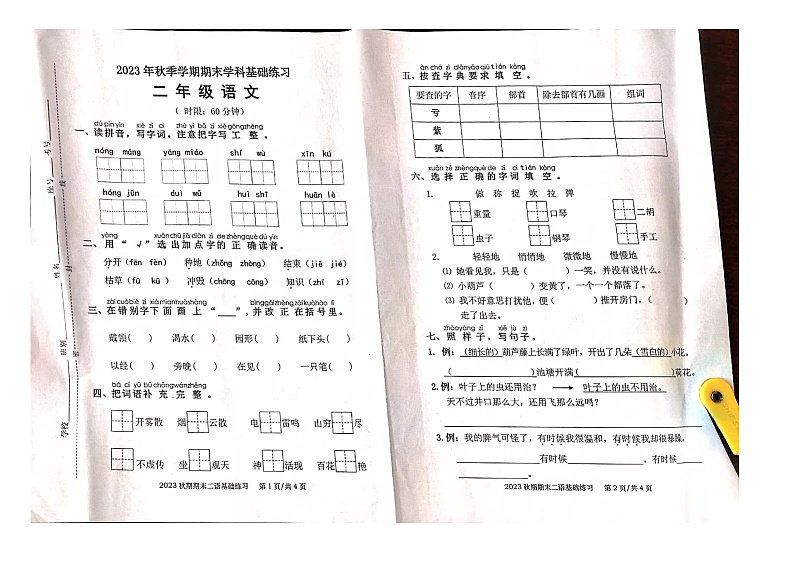 2023年秋季学期期末学科基础练习
二年级语文
（ 时限：60分钟）
dú pīn yīn xiě zì cí zhù yì bǎ zì xiě gōng zhěng
一、读拼音，写字词。注意把字写 工 整 。
nóng máng yāng miáo shí wù xīn kǔ
hóng jūn duì wǔ huì shī huān lè
二、用 “ √” 选 出 加 点 字 的 正 确 读音。
分开（fēn fèn） 种地（zhǒng zhòng） 结束（jiē jié）
枯草（fū kū ） 冲毁（chōng cōng） 知识（zhī zī）
三、在 错 别 字 下 面 画 上 “ ___”，并 改 正 在 括 号 里。
戴领（ ） 渴水（ ） 园形（ ） 纸下头（ ）
以经（ ） 旁晚（ ） 在见（ ） 一只笔（ ）
bǎ cí yǔ bǔ chōng wán zhěng
四、把 词语 补 充 完 整 。
开雾散 烟 云散 电 雷鸣 山穷 尽
不虚传 坐 观天 神 活现 百花 艳
2023秋期期末二语基础练习 第1页/共4页
学校
班别
姓名
座号
考号
密
封
线
àn chá zì diǎn yāo qiú tián kòng
五、按 查 字 典 要 求 填 空 。
要查的字 音序 部首 除去部首有几画 组词
亏
紫
狐
xuǎn zé zhèng què de zì cí tián kòng
六、选 择 正 确 的 字 词 填 空 。
1. 做 称 捉 吹 拉 弹
重量 口琴 二胡
虫子 钢琴 手工
2. 轻轻地 悄悄地 微微地 慢慢地
⑴ 她看见我，只是（ ）一笑，并没有说什么。
⑵ 小葫芦（ ）变黄了，一个一个都落了。
⑶ 我不好意思打扰他，便（ ）推开房门，（ ）
走了出去。
zhào yàng zi xiě jù zi
七、照 样 子，写 句 子。
1. 例：（细长的）葫芦藤上长满了绿叶，开出了几朵（雪白的）小花。
（ ）池塘开满（ ）荷花。
2. 例：叶子上的虫还用治？ → 叶子上的虫不用治。
天不过井口那么大，还用飞那么远吗？
3. 例：我的脾气可怪了，有时候我很温和，有时候我却很暴躁。
有时候 ，有时候
2023秋期期末二语基础练习 第2页/共4页